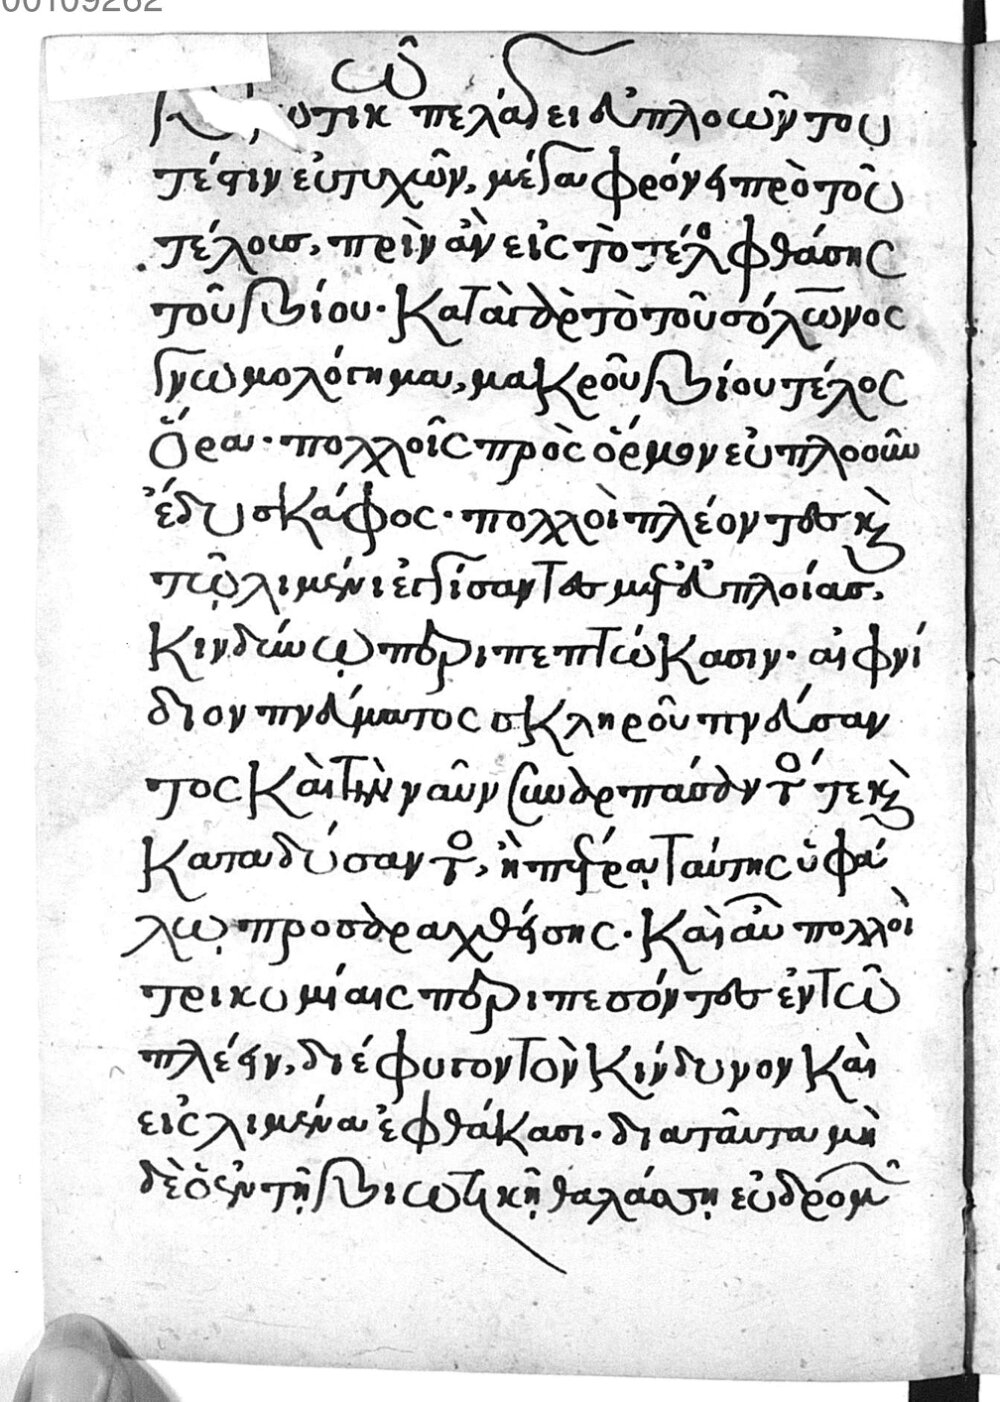 00109262
τῶ
βιωτικῶ πελάγει εὐπλοῶν τοῦ
τέστιν εὐτυχῶν, μέγα φρόνει πρὸ τοῦ
τέλους, πρὶν ἂν εἰς τὸ τέλος φθάσης
τοῦ βίου· κατὰ γὰρ τὸ τοῦ σόλωνος
γνωμολόγημα, μακροῦ βίου τέλος
ὅρα· πολλοῖς πρὸς ὅρμον εὐπλοοῦν
ἔδυ σκάφος· πολλοὶ πλέοντες καὶ
τῷ λιμένι ἐγγίσαντες μετ' εὐπλοίας,
κινδύνῳ περιπεπτώκασιν· αἰφνί
διον πνεύματος σκληροῦ πνεύσαν
τος καὶ τὴν ναῦν συναρπάσαντός τε καὶ
καταδύσαντος, ἢ πέτρᾳ ταύτης ὑφά
λῳ προσαραχθείσης· καὶ αὖ πολλοὶ
τρικυμίαις περιπεσόντες ἐν τῶ
πλέειν, διέφυγον τὸν κίνδυνον καὶ
εἰς λιμένα ἐφθάκασι· διαταῦτα μὴ
δὲ ὁ ἐν τῇ βιωτικῇ θαλάσσῃ εὐδρομῶν